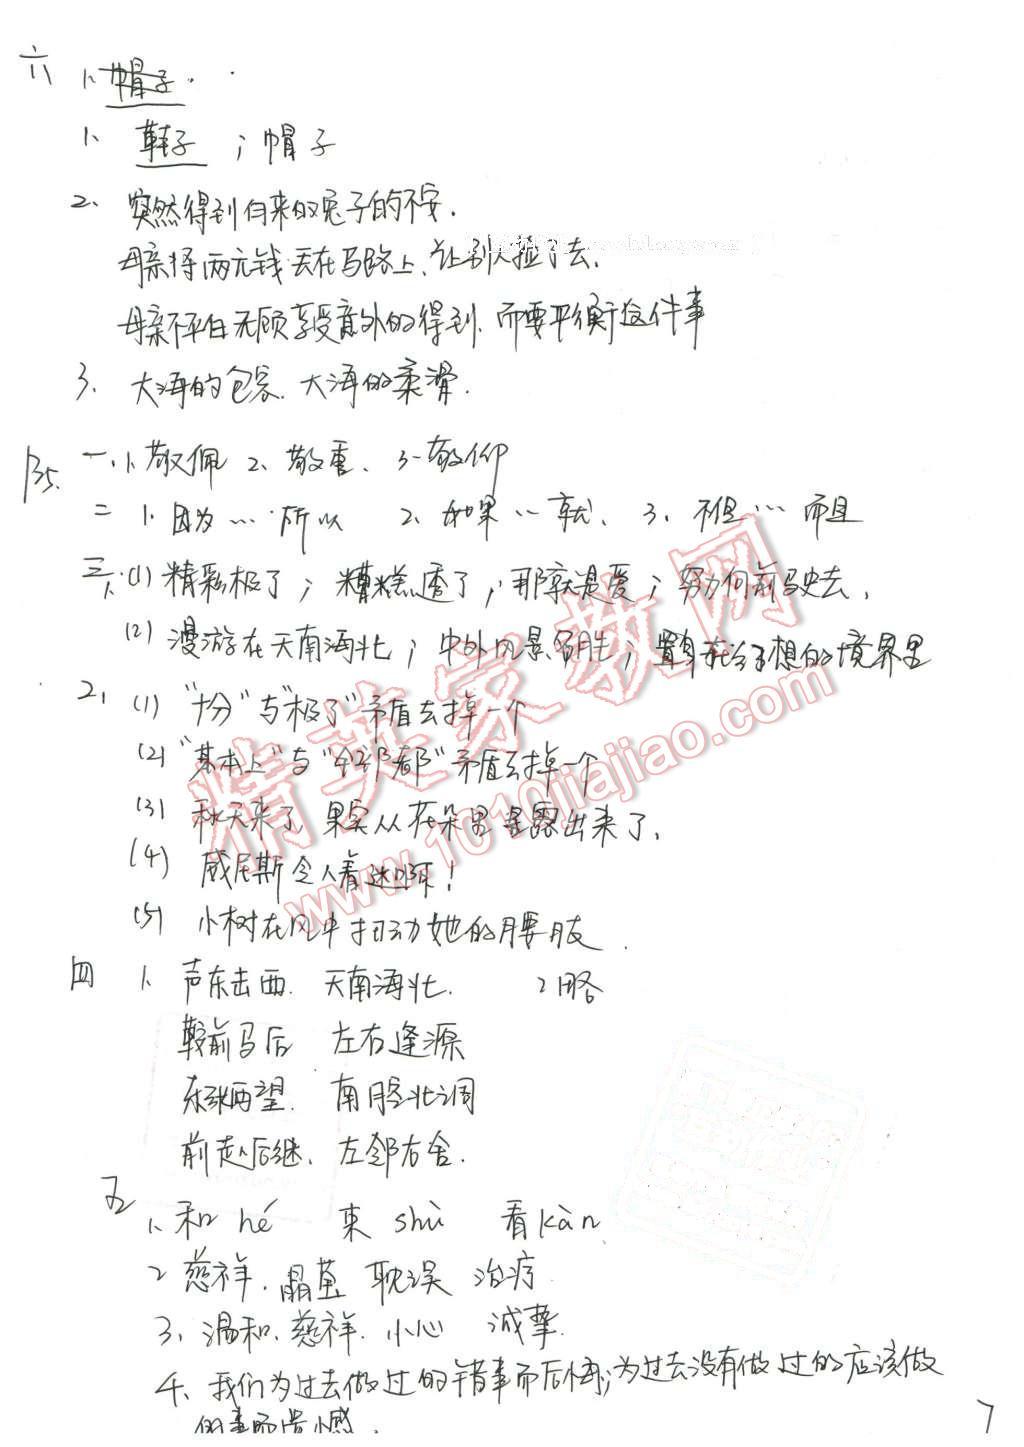 六 1、帽子
1、鞋子；帽子
2、突然得到自来的兔子的不安.
母亲将两元钱丢在马路上、让别人捡了去、
母亲不平白无顾享受意外的得到、而要平衡这件事
3、大海的包容、大海的柔滑.
P35. 一、1、敬佩 2、敬重、3、敬仰
二 1、因为…所以 2、如果…就、 3、不但…而且
三、1、(1)精彩极了；糟糕透了；那就是爱；努力向前驶去、
(2)漫游在天南海北；中外风景名胜；置身在幻想的境界里
2、(1)"十分"与"极了"矛盾去掉一个
(2)"基本上"与"全部都"矛盾去掉一个
(3) 秋天来了，果实从花朵里显露出来了、
(4) 威尼斯令人着迷啊！
(5) 小树在风中扭动她的腰肢.
四 1、声东击西. 天南海北. 2略
鞍前马后 左右逢源
东张西望. 南腔北调
前赴后继、左邻右舍.
五 1、和 hé 束 shù 看 kàn
2 慈祥、晶莹 耽误 治疗
3、温和、慈祥、小心 诚挚.
4、我们为过去做过的错事而后悔；为过去没有做过的应该做
的事而遗憾.
7
精英家教网
www.1010jiajiao.com